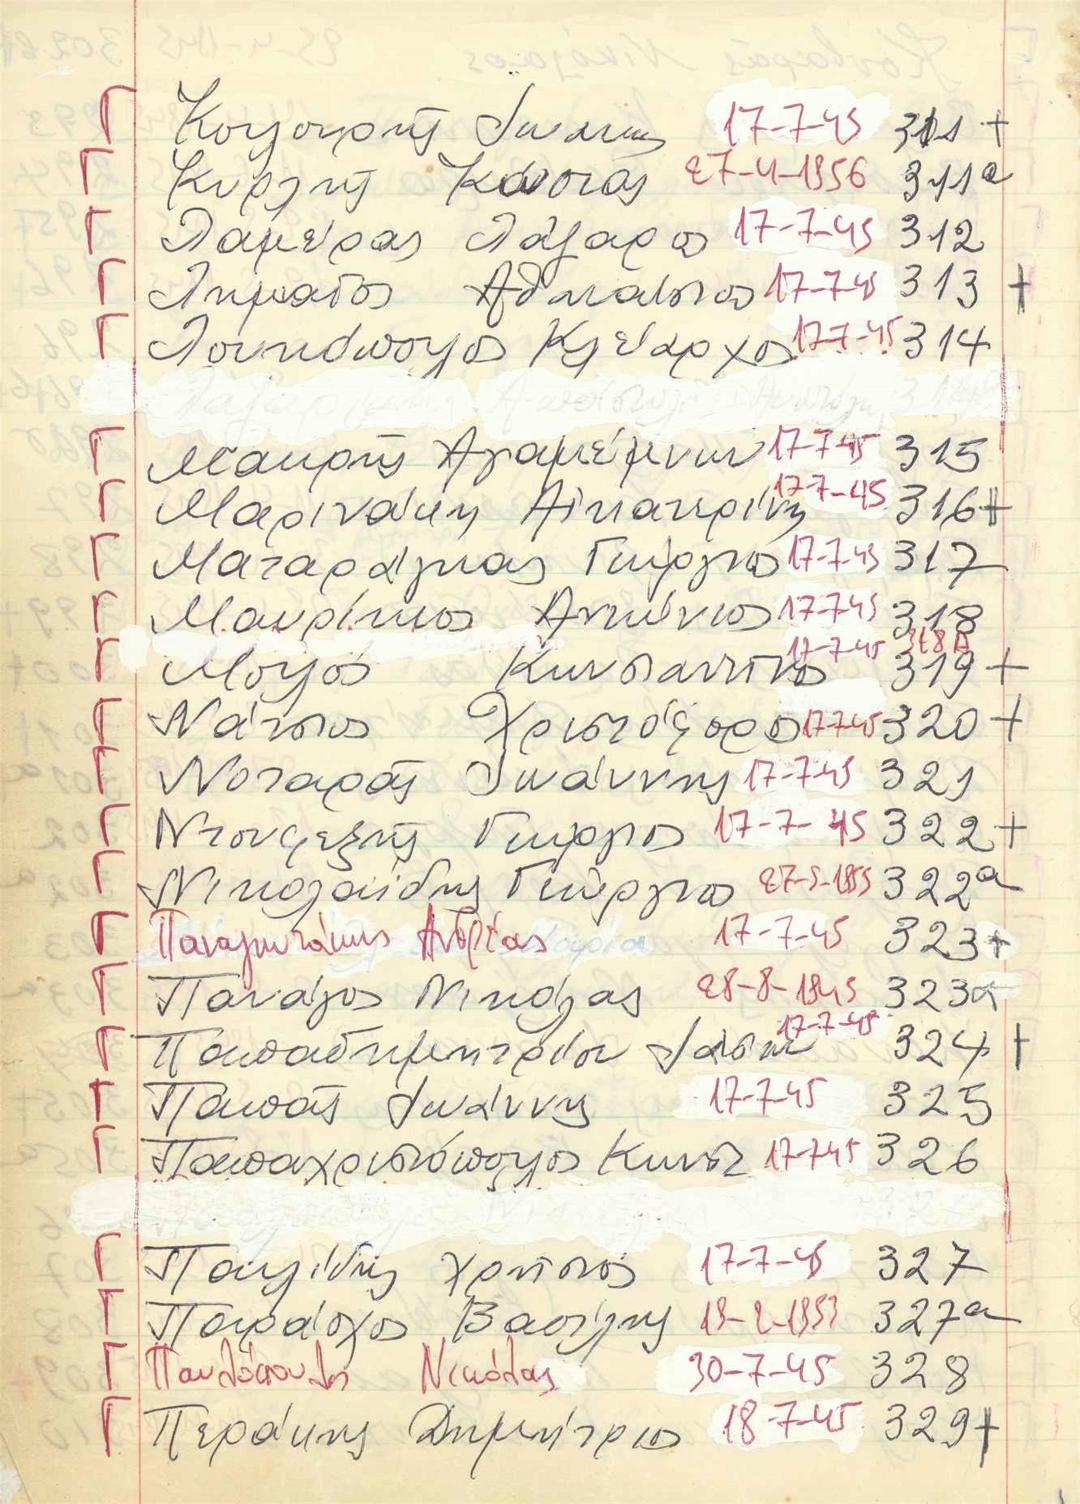 Γ Κουλουρής Ιωάννης 17-7-45 311 +
Γ Κυρλής Κώστας 27-4-1956 311α
Γ Λαμέρας Λάζαρος 17-7-45 312
Γ Λημαῖος Αθανάσιος 17-7-45 313 +
Γ Λουκόπουλος Κλέαρχος 17-7-45 314
Γ Μακρής Αγαμέμνων 17-7-45 315
Γ Μαρινάκη Αἰκατερίνη 17-7-45 316+
Γ Ματαράγκας Γεώργιος 17-7-45 317
Γ Μαυρίκιος Αντώνιος 17-7-45 318
17-7-45 318 Α
Γ Μόλος Κωνσταντίνος 319 +
Γ Νάτσιος Χριστόφορος 17-7-45 320 +
Γ Νοταράς Ιωάννης 17-7-45 321
Γ Ντουφεξής Γεώργιος 17-7-45 322 +
Γ Νικολαΐδης Γεώργιος 27-5-1955 322α
Γ Παναγιωτάκης Ανδρέας 17-7-45 323+
Γ Πανάγος Νικόλας 28-8-1945 323α
Γ Παπαδημητρίου Ιάσων 17-7-45 324 +
Γ Παπάς Ιωάννης 17-7-45 325
Γ Παπαχριστόπουλος Κωνστ 17-7-45 326
Γ Παυλίδης Χρήστος 17-7-45 327
Γ Παράσχος Βασίλης 327α
Γ Παυλόπουλος Νικόλας 30-7-45 328
Γ Περάκης Δημήτριος 18-7-45 329+